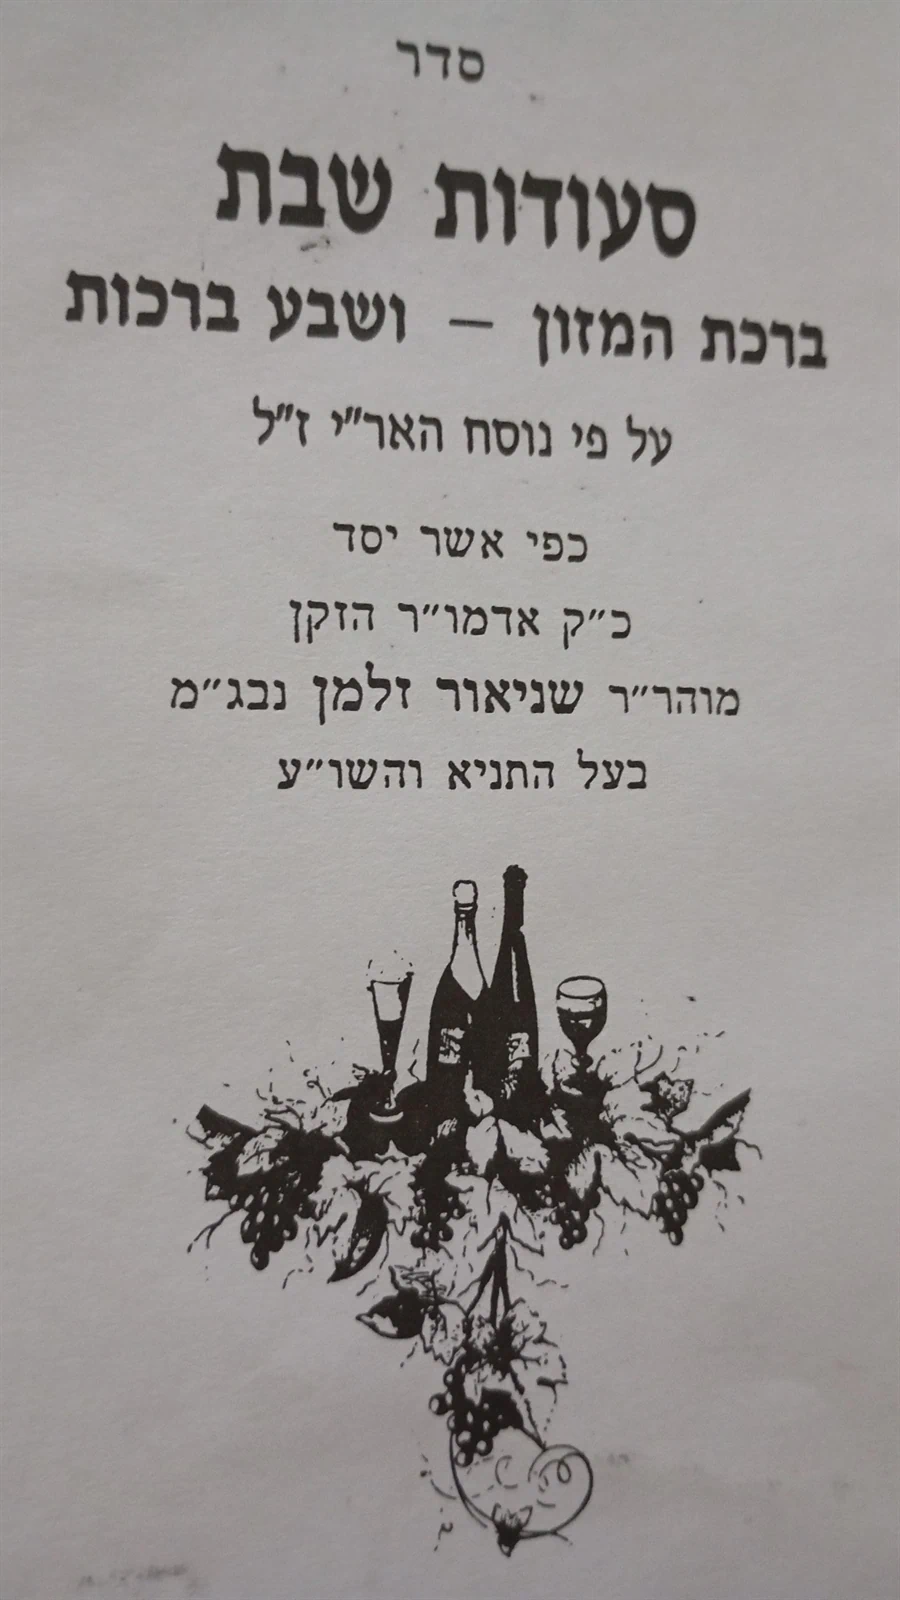 סדר
סעודות שבת
ברכת המזון – ושבע ברכות
על פי נוסח האר״י ז״ל
כפי אשר יסד
כ״ק אדמו״ר הזקן
מוהר״ר שניאור זלמן נבג״מ
בעל התניא והשו״ע